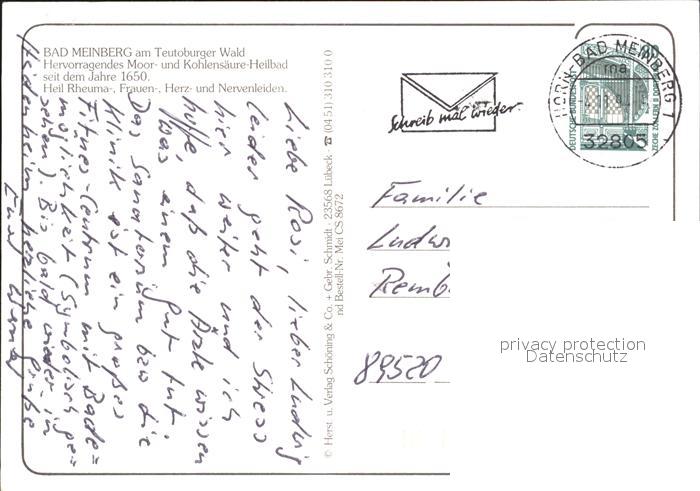 BAD MEINBERG am Teutoburger Wald
Hervorragendes Moor- und Kohlensäure-Heilbad
seit dem Jahre 1650.
Heil Rheuma-, Frauen-, Herz- und Nervenleiden.
Liebe Rosi, lieber Ludwig
leider geht der Stress
hier weiter und ich
hoffe, daß die Ärzte wissen
was einem gut tut.
Das Sanatorium bzw die
Klinik ist ein großes
Fitnes-Centrum mit Bade=
möglichkeit (Symbolisch ge=
sehen) Bis bald wieder in
herzliche Grüße
Euer
© Herst. u. Verlag Schöning & Co. + Gebr. Schmidt · 23568 Lübeck ☎ (04 51) 310 310 0
nd Bestell-Nr. Mei CS 8672
Schreib mal wieder.
HORN-BAD MEINBERG 1
ma
32805
80
DEUTSCHE BUNDES
ZECHE ZOLLERN II DOR
Familie
Ludw
Remb
89520
privacy protection
Datenschutz